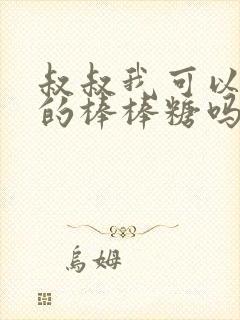 叔叔我可以
的棒棒糖吗
烏姆